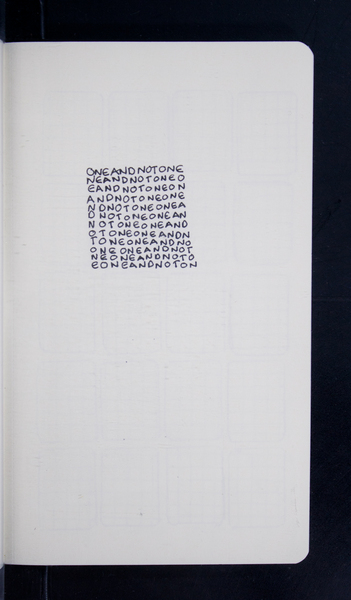 ONEANDNOTONE
NEANDNOTONEO
EANDNOTONEON
ANDNOTONEONE
NDNOTONEONEA
DNOTONEONEAN
NOTONEONEAND
OTONEONEANDN
TONEONEANDNO
ONEONEANDNOT
NEONEANDNOTO
EONEANDNOTON